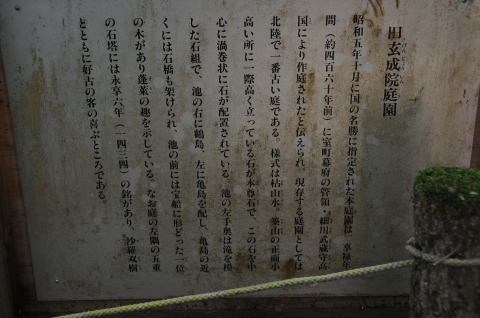 旧玄成院庭園
昭和五年十月に国の名勝に指定された本庭園は、享禄年
間（約四百六十年前）に室町幕府の管領・細川武蔵守高
国により作庭されたと伝えられ、現存する庭園としては
北陸で一番古い庭である。様式は枯山水、築山の正面小
高い所に一際高く立っている石が本尊石で、この石を中
心に渦巻状に石が配置されている。池の左手奥は滝を模
した石組で、池の右に鶴島、左に亀島を配し、亀島の近
くには石橋も架けられ、池の前には宝船に形どった一位
の木があり蓬萊の趣を示している。なお庭の左隅の五重
の石塔には永享六年（一四三四）の銘があり、沙羅双樹
とともに好古の客の喜ぶところである。